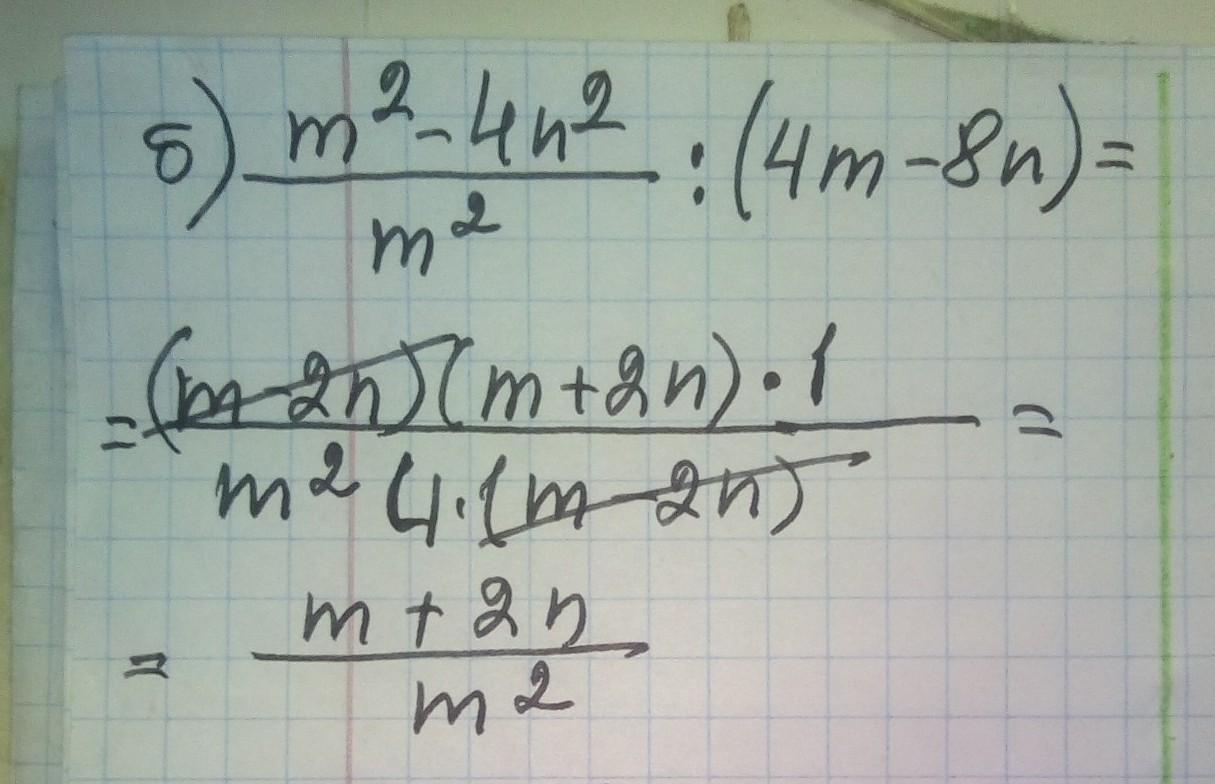 б) m² - 4n² / m² : (4m - 8n) =
= (m - 2n)(m + 2n) · 1 / m² 4 · (m - 2n) =
= m + 2n / m²